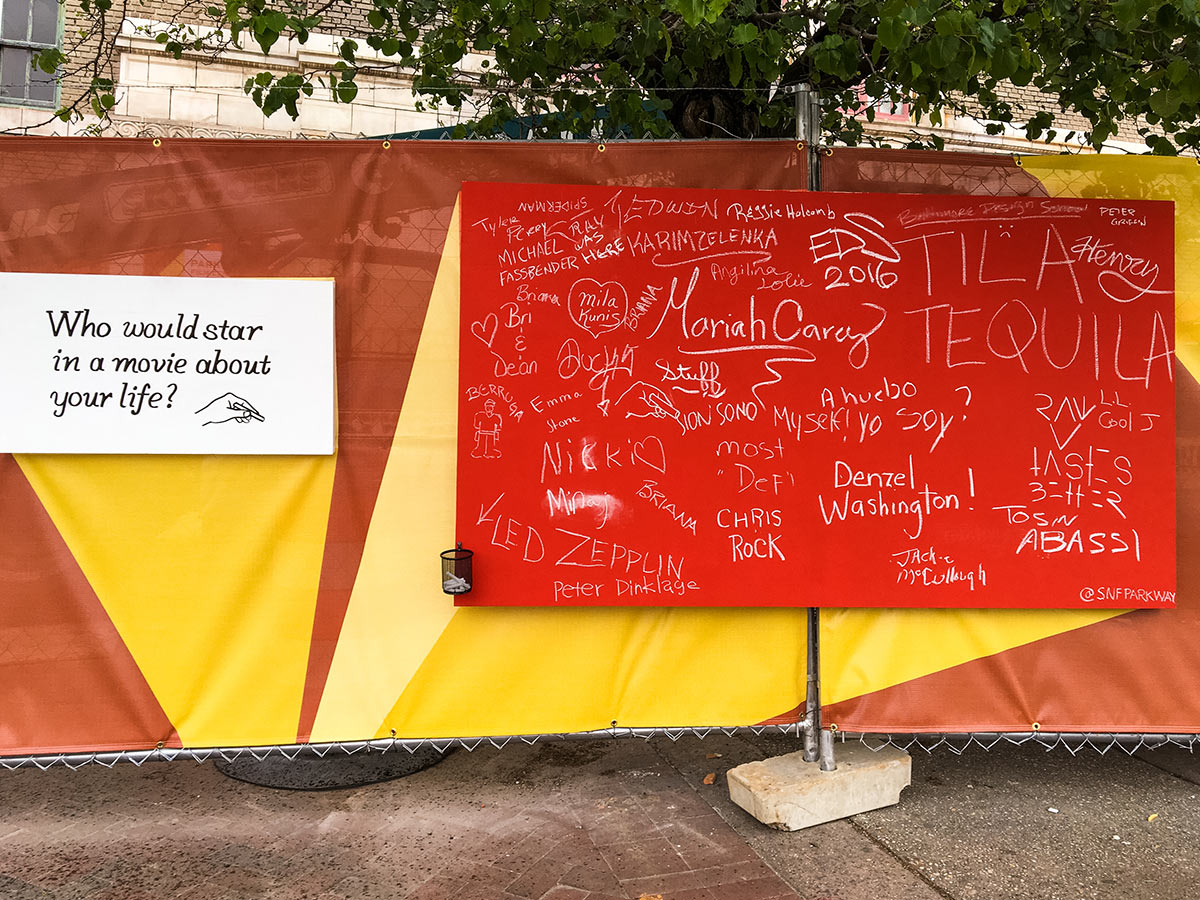 Who would star
in a movie about
your life?
SPIDERMAN
Tyler
Perry
RAY
WAS
HERE
MICHAEL
FASSBENDER
EDWIN
Reggie Holcomb
KARIMZELENKA
Angilina
Jolie
EDS
2016
Baltimore Design School
PETER
GRIFFIN
TILA
TEQUILA
Henry
Briana
Bri
&
Dean
mila
Kunis
BRIANA
Mariah Carey
Stuff
Emma
Stone
SION SONO
Ahuebo
Myself! yo soy?
LL
Cool J
RAW
TASTES
BETTER
Nicki
Minaj
BRIANA
most
"Def"
CHRIS
ROCK
Denzel
Washington!
TOSIN
ABASSI
LED ZEPPLIN
Peter Dinklage
Jack-e
McCullough
@SNFPARKWAY